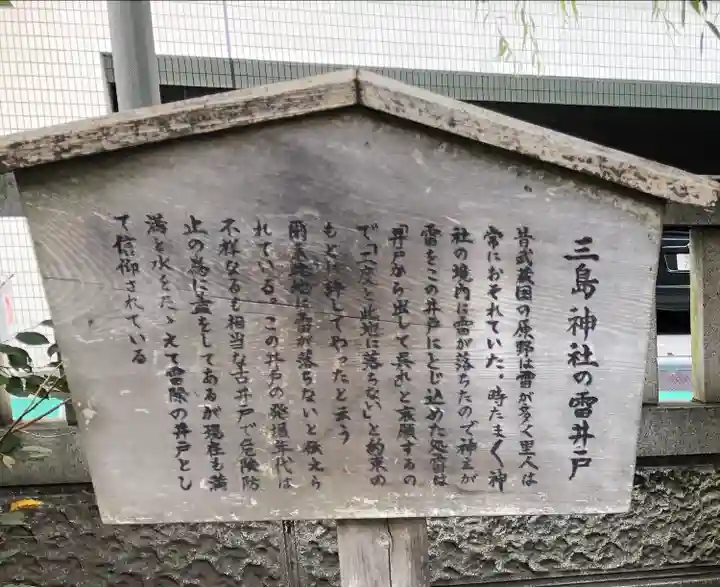 三島神社の雷井戸
昔武蔵国の原野は雷が多く里人は
常におそれていた。時たまく神
社の境内に雷が落ちたので神主が
雷をこの井戸にとじ込めた処雷は
「井戸から出して呉れと哀願するの
で「二度と此地に落ちない」と約束の
もとに許してやったと云う
爾来此地に雷が落ちないと伝えら
れている。この井戸の発掘年代は
不祥なるも相当な古井戸で危険防
止の為に蓋をしてあるが現在も満
満と水をたゝえて雷除の井戸とし
て信仰されている